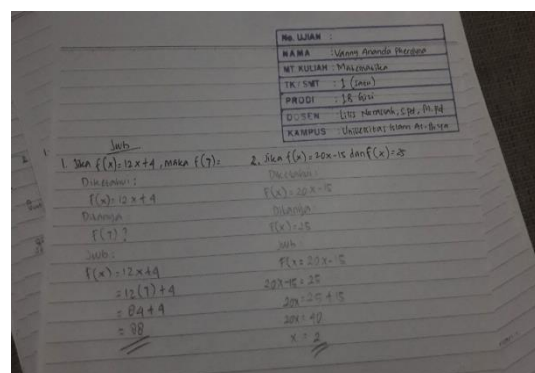 No. UJIAN :
NAMA : Vanny Ananda
MT KULIAH : Matematika
TK/SMT : I (Satu)
PRODI : S1 Gizi
DOSEN :
KAMPUS : Universitas Islam
Jwb
1. Jika f(x) = 12x+4, maka f(7) =
Diketahui :
f(x) = 12x+4
Ditanya :
f(7) ?
Jwb :
f(x) = 12x+4
= 12(7)+4
= 84+4
= 88
2. Jika f(x) = 20x-15 dan f(x) = 25
Diketahui :
f(x) = 20x-15
Ditanya :
f(x) = 25
Jwb :
f(x = 20x-15
20x-15 = 25
20x = 25+15
20x = 40
x = 2